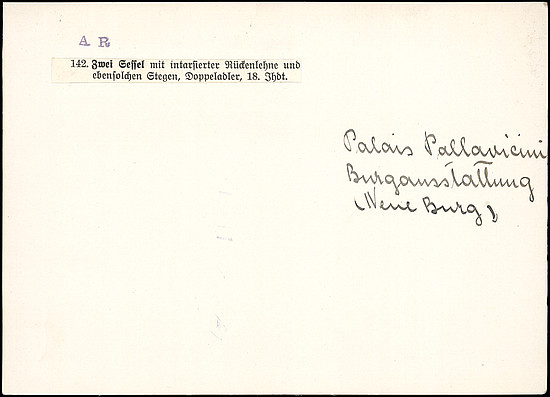 A R
142. Zwei Sessel mit intarsierter Rückenlehne und
ebensolchen Stegen, Doppeladler, 18. Jhdt.
Palais Pallavicini
Burgausstattung
(Neue Burg)